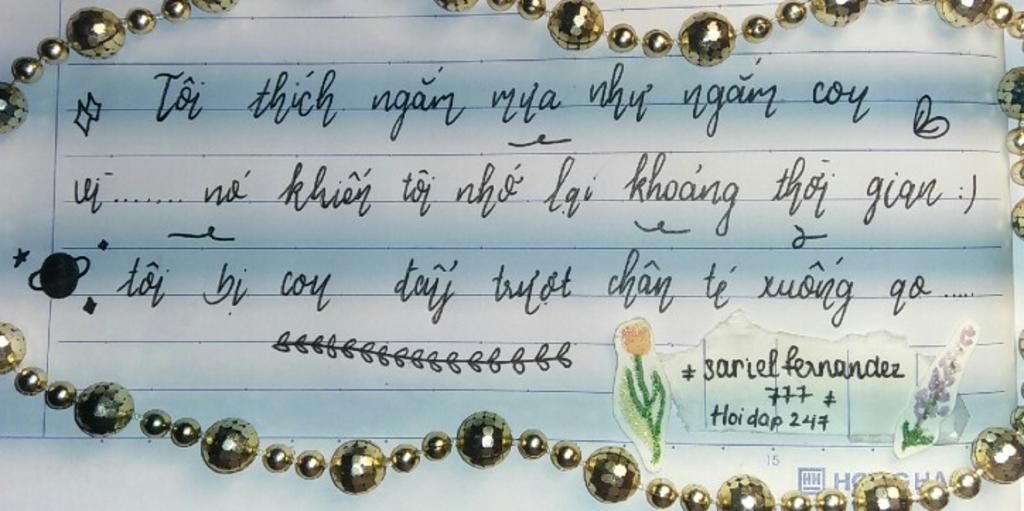 Tôi thích ngắm mưa như ngắm cou
vì....... nó khiến tôi nhớ lại khoảng thời gian :)
tôi bị cou đẩy trượt chân té xuống ao .....
# sariel fernandez
777 #
Hoidap 247
15
HH HONG HA